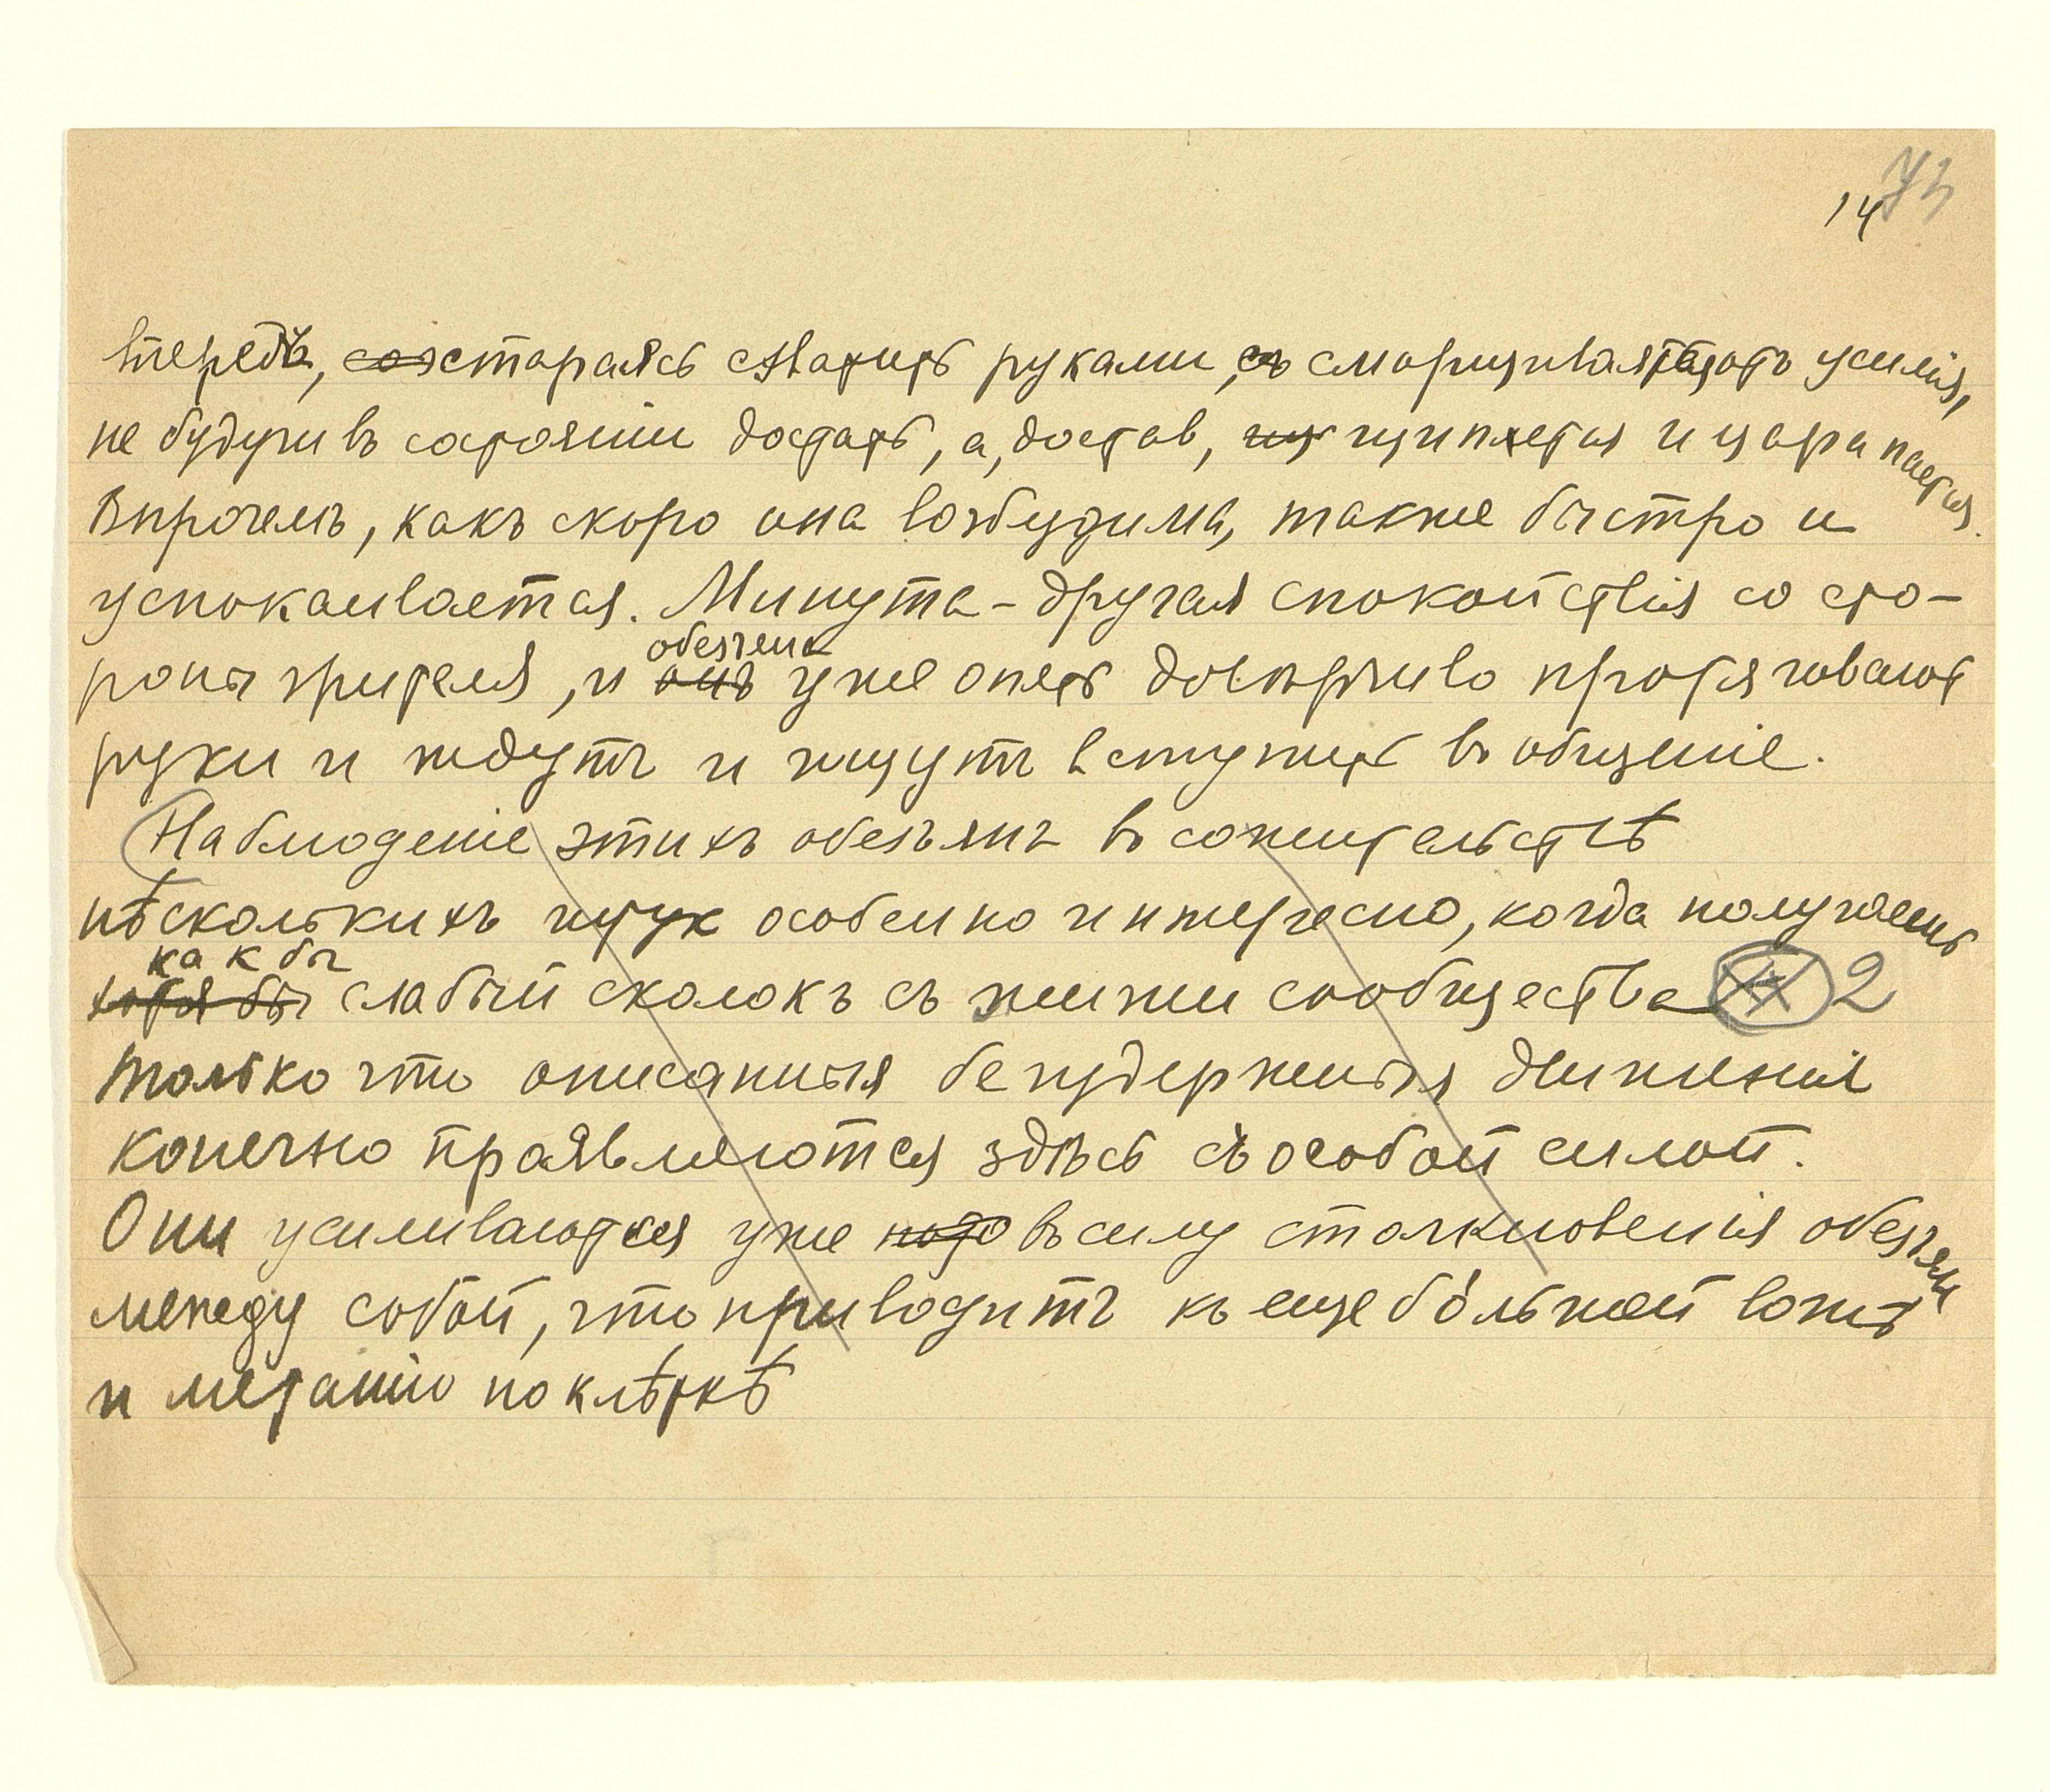 14 73
впередъ, стараясь схватить руками, сморщиваясь отъ усилія,
не будучи въ состояніи достать, а, достав, щиплется и царапается.
Впрочемъ, какъ скоро она возбудима, также быстро и
успокаивается. Минута-другая спокойствія со сто-
обезъяна
роны зрителя, и онъ уже опять довѣрчиво протягивают
руки и ждутъ и ищутъ вступить въ общеніе.
Наблюденіе этихъ обезъянъ въ сожительствѣ
нѣсколькихъ штук особенно интересно, когда получаешь
как бы
хотя бы слабый сколокъ съ жизни сообщества 2
Только что описанныя безудержныя движенія
конечно проявляются здѣсь съ особой силой.
Они усиливаются уже въ силу столкновенія обезъян
между собой, что приводитъ къ еще бо́льшей вознѣ
и метанію по клѣткѣ